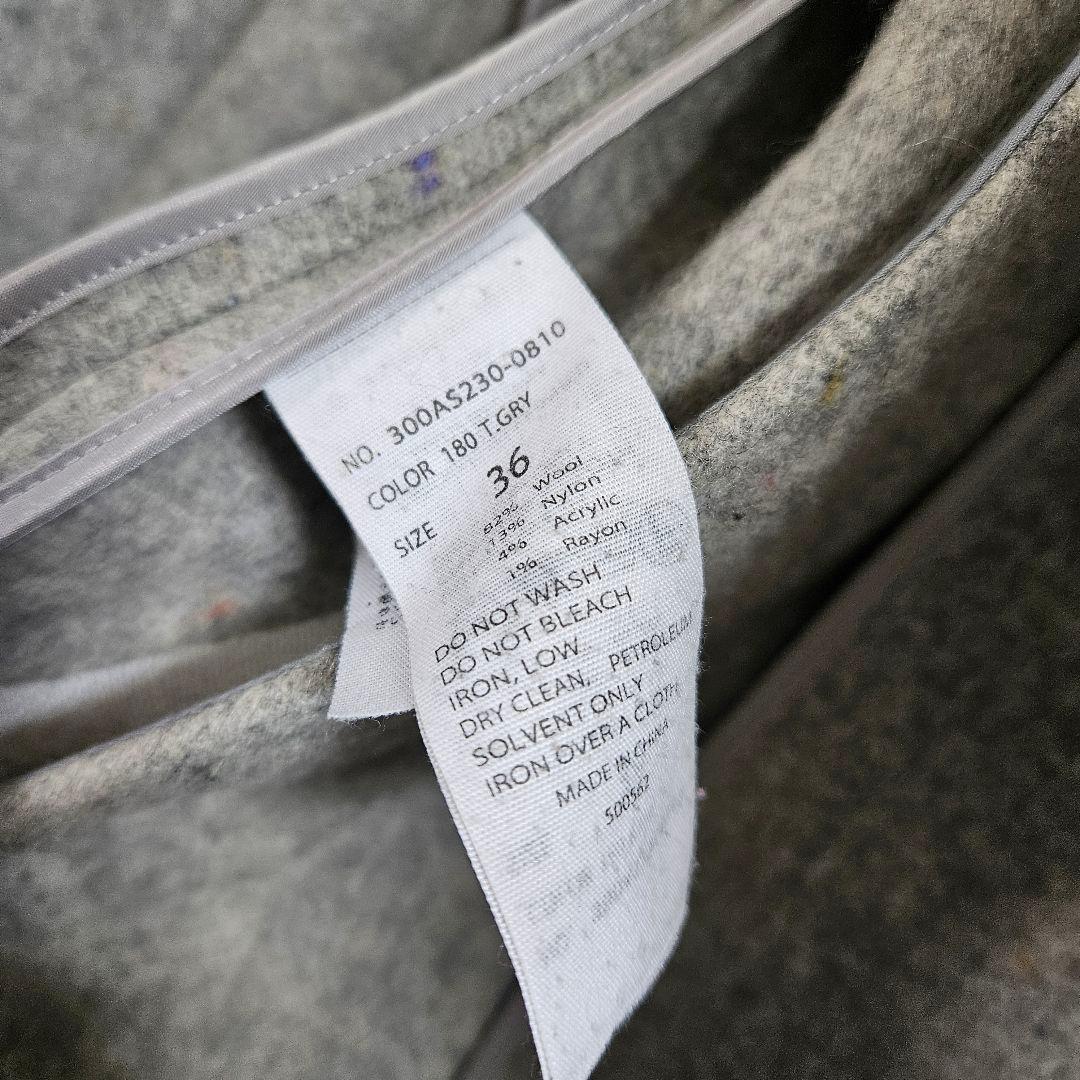 NO. 300AS230-0810
COLOR 180 T.GRY
SIZE 36
82% Wool
13% Nylon
4% Acrylic
1% Rayon
DO NOT WASH
DO NOT BLEACH
IRON, LOW
DRY CLEAN, PETROLEUM
SOLVENT ONLY
IRON OVER A CLOTH
MADE IN CHINA
500562